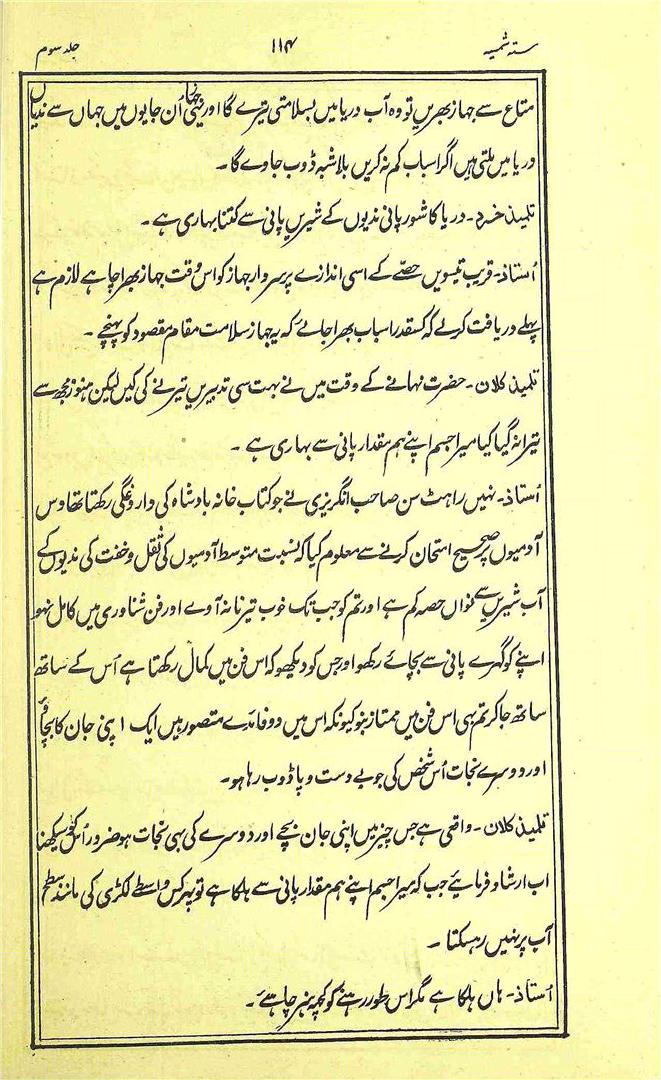 ستہ شمسیہ ۱۱۴ جلد سوم
متاع سے جہاز بھریں تو وہ آب دریا میں بسلامتی تیرے گا اور اُن جایوں میں جہاں سے ندیاں
دریا میں ملتی ہیں اگر اسباب کم نہ کریں بلاشبہ ڈوب جاوے گا۔
تلمیذ خرد۔ دریا کا شور پانی ندیوں کے شیریں پانی سے کتنا بہاری ہے۔
اُستاذ۔ قریب تیسویں حصّے کے اسی اندازے پر سروار جہاز کو اس وقت جہاز بھرا چاہے لازم ہے
پہلے دریافت کرلے کہ کسقدر اسباب بھرا جائے کہ یہ جہاز سلامت مقام مقصود کو پہنچے۔
تلمیذ کلان۔ حضرت نہانے کے وقت میں نے بہت سی تدبیریں تیرنے کی کیں لیکن ہنوز مجھ سے
تیرا نہ گیا کیا میرا جسم اپنے ہم مقدار پانی سے بہاری ہے۔
اُستاذ۔ نہیں راہٹ سن صاحب انگریزی نے جو کتاب خانہ بادشاہ کی داروغگی رکھتا تھا دس
آدمیوں پر صحیح امتحان کرنے سے معلوم کیا کہ نسبت متوسط آدمیوں کی ثقل و خفت کی ندیوں کے
آب شیریں سے نواں حصہ کم ہے اور تم کو جب تک خوب تیرنا نہ آوے اور فن شناوری میں کامل نہو
اپنے کو گہرے پانی سے بچائے رکھو اور جس کو دیکھو کہ اس فن میں کمال رکھتا ہے اُس کے ساتھ
ساتھ جا کر تم بہی اس فن میں ممتاز بنو کیونکہ اس میں دو فائدے متصور ہیں ایک اپنی جان کا بچاؤ
اور دوسرے نجات اُس شخص کی جو بے دست و پا ڈوب رہا ہو۔
تلمیذ کلان۔ واقعی ہے جس چیز میں اپنی جان بچے اور دوسرے کی بہی نجات ہو ضرور اُسکو سیکھنا
اب ارشاد فرمائیے جب کہ میرا جسم اپنے ہم مقدار پانی سے ہلکا ہے تو پہر کس واسطے لکڑی کی مانند سطح
آب پر نہیں رہ سکتا۔
اُستاذ۔ ہاں ہلکا ہے مگر اس طور رہنے کو کچہہ ہنر چاہئے۔